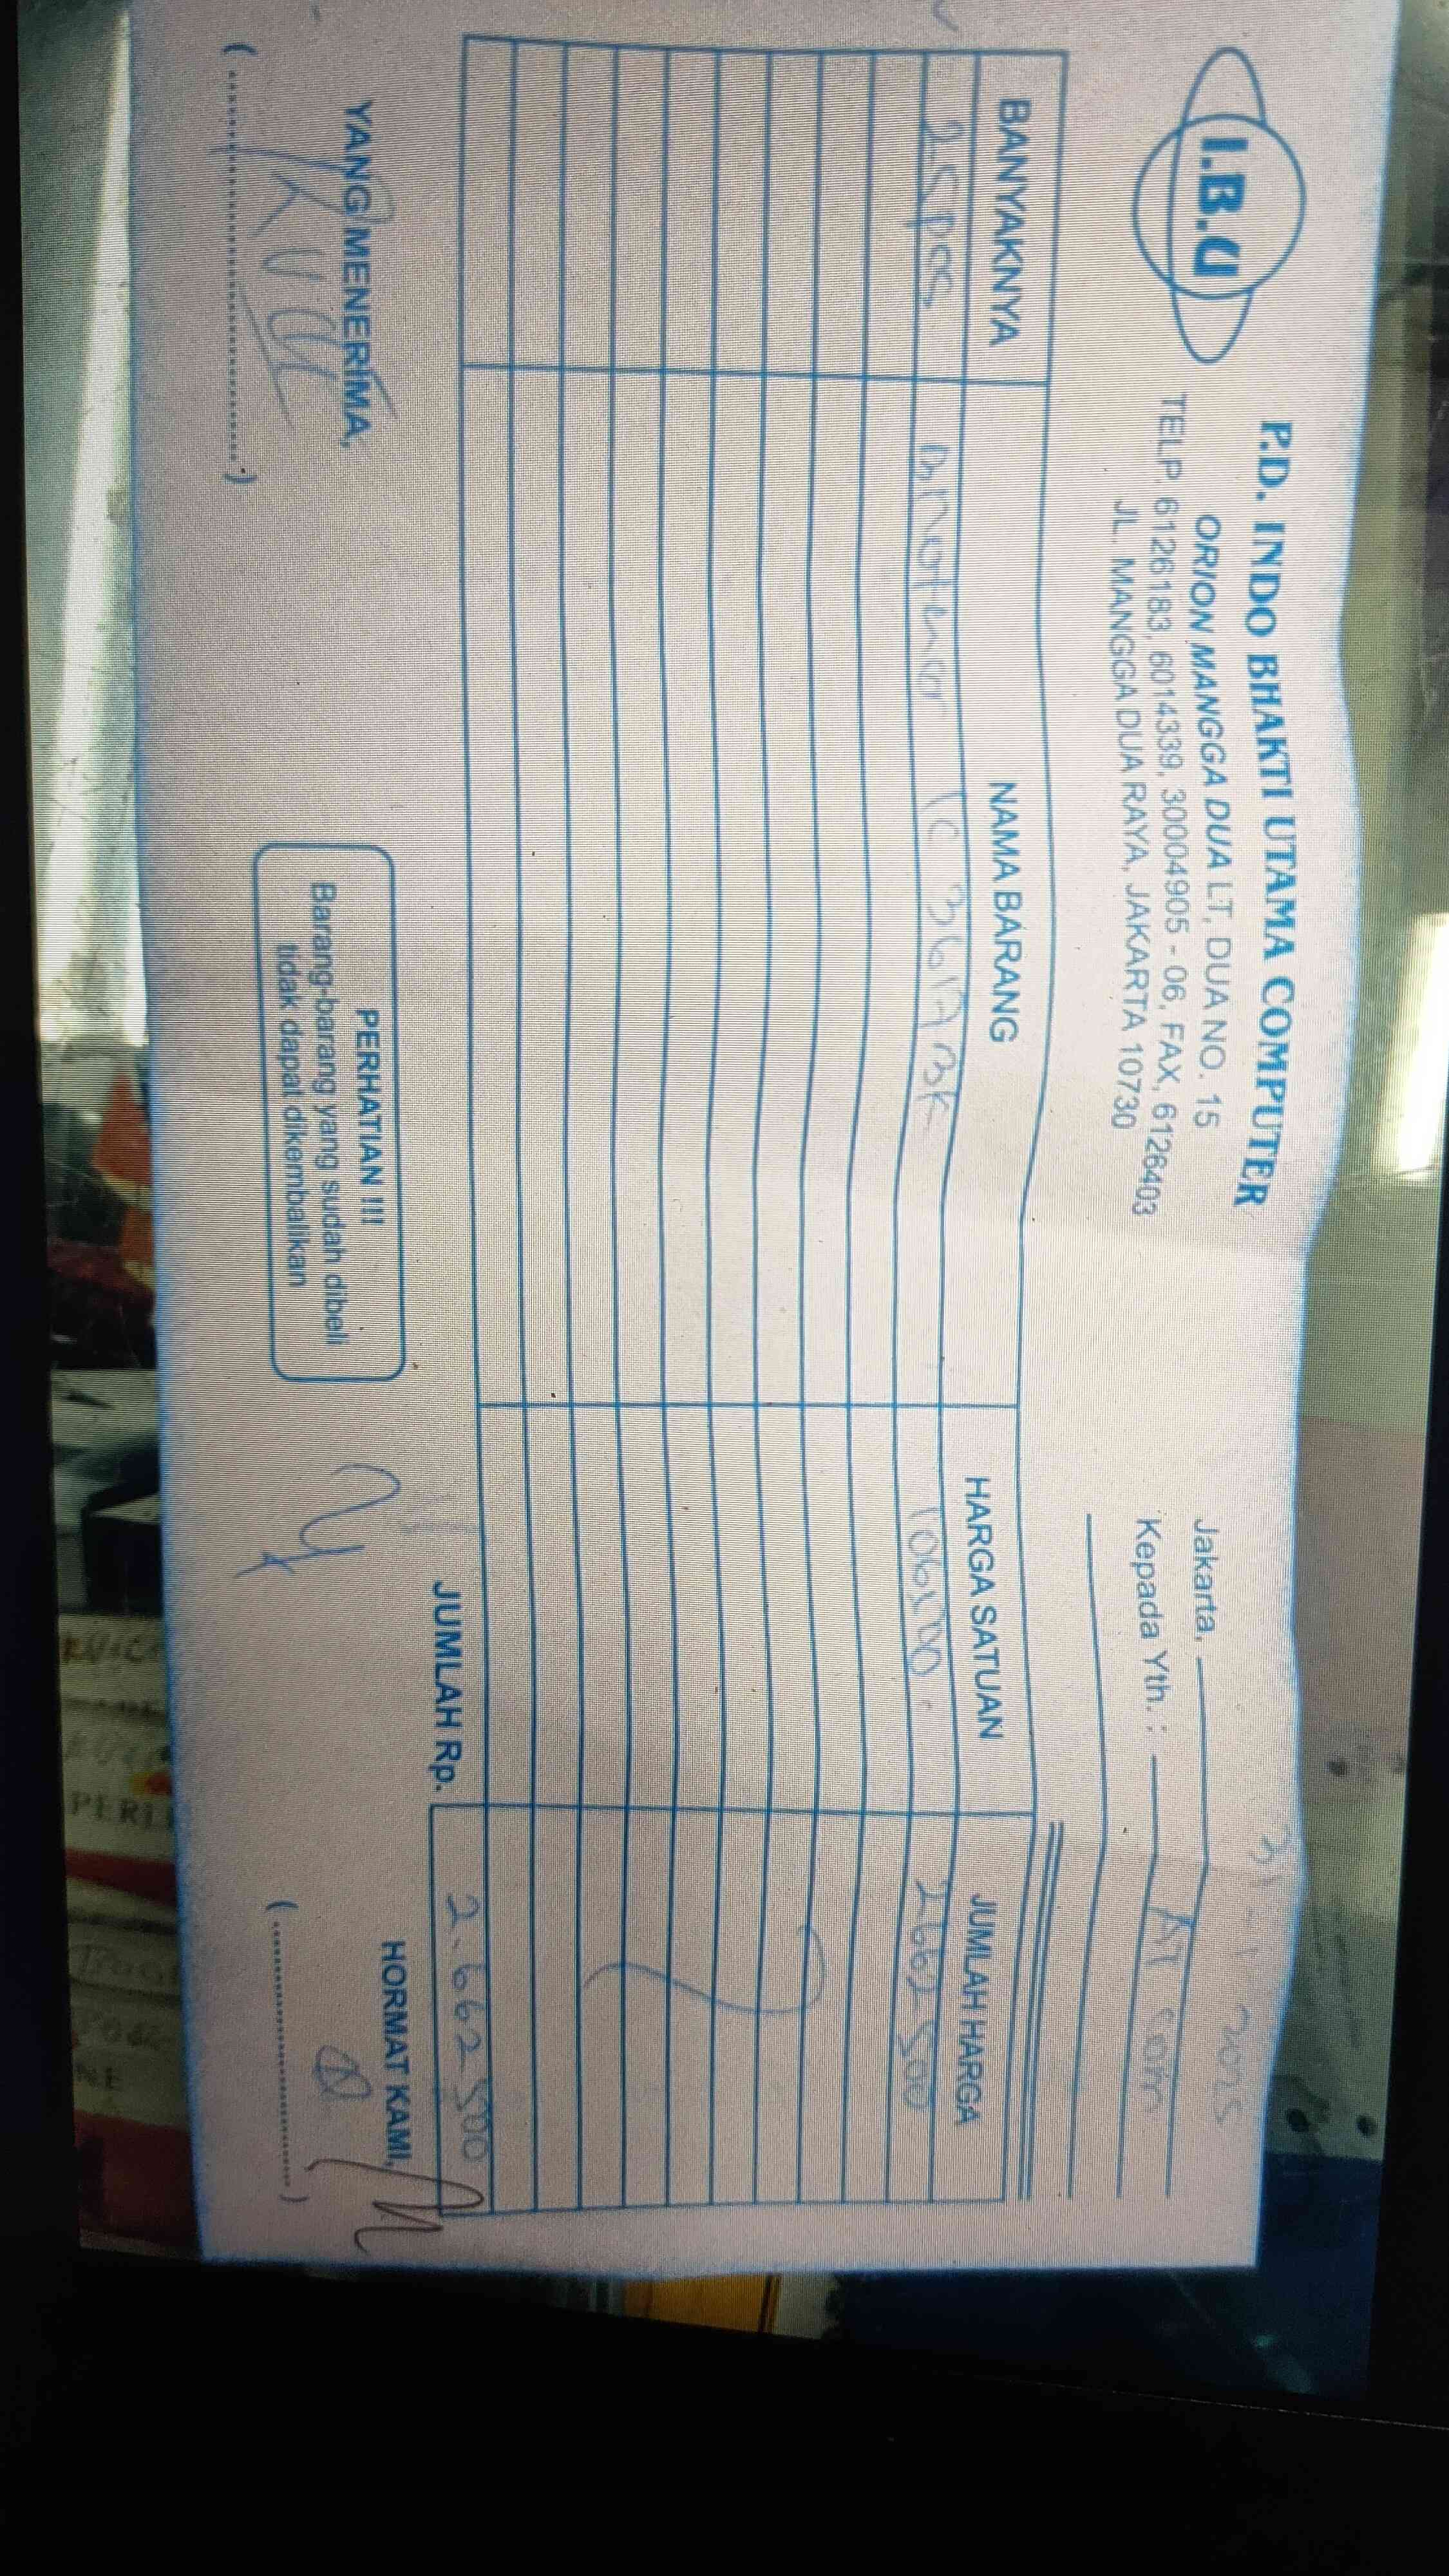 I.B.U
P.D. INDO BHAKTI UTAMA COMPUTER
ORION MANGGA DUA LT, DUA NO. 15
TELP. 6126183, 6014339, 30004905 - 06, FAX, 6126403
JL. MANGGA DUA RAYA, JAKARTA 10730
31 - 1 2025
Jakarta,
Kepada Yth. : AT com
BANYAKNYA NAMA BARANG HARGA SATUAN JUMLAH HARGA
25 pcs IC 361A BK 106.500 2662500
JUMLAH Rp. 2.662500
YANG MENERIMA,
PERHATIAN !!!
Barang-barang yang sudah dibeli
tidak dapat dikembalikan
HORMAT KAMI,
(....................) (....................)
PERL